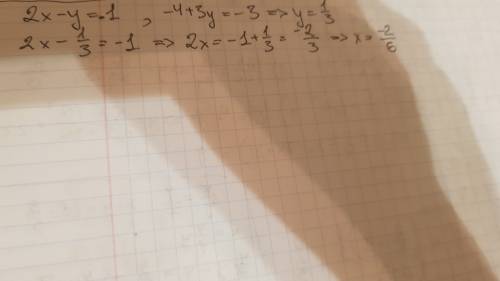 2x-y=-1 , -4+3y=-3 => y=1/3
2x-1/3=-1 => 2x=-1+1/3=-2/3 => x=-2/6